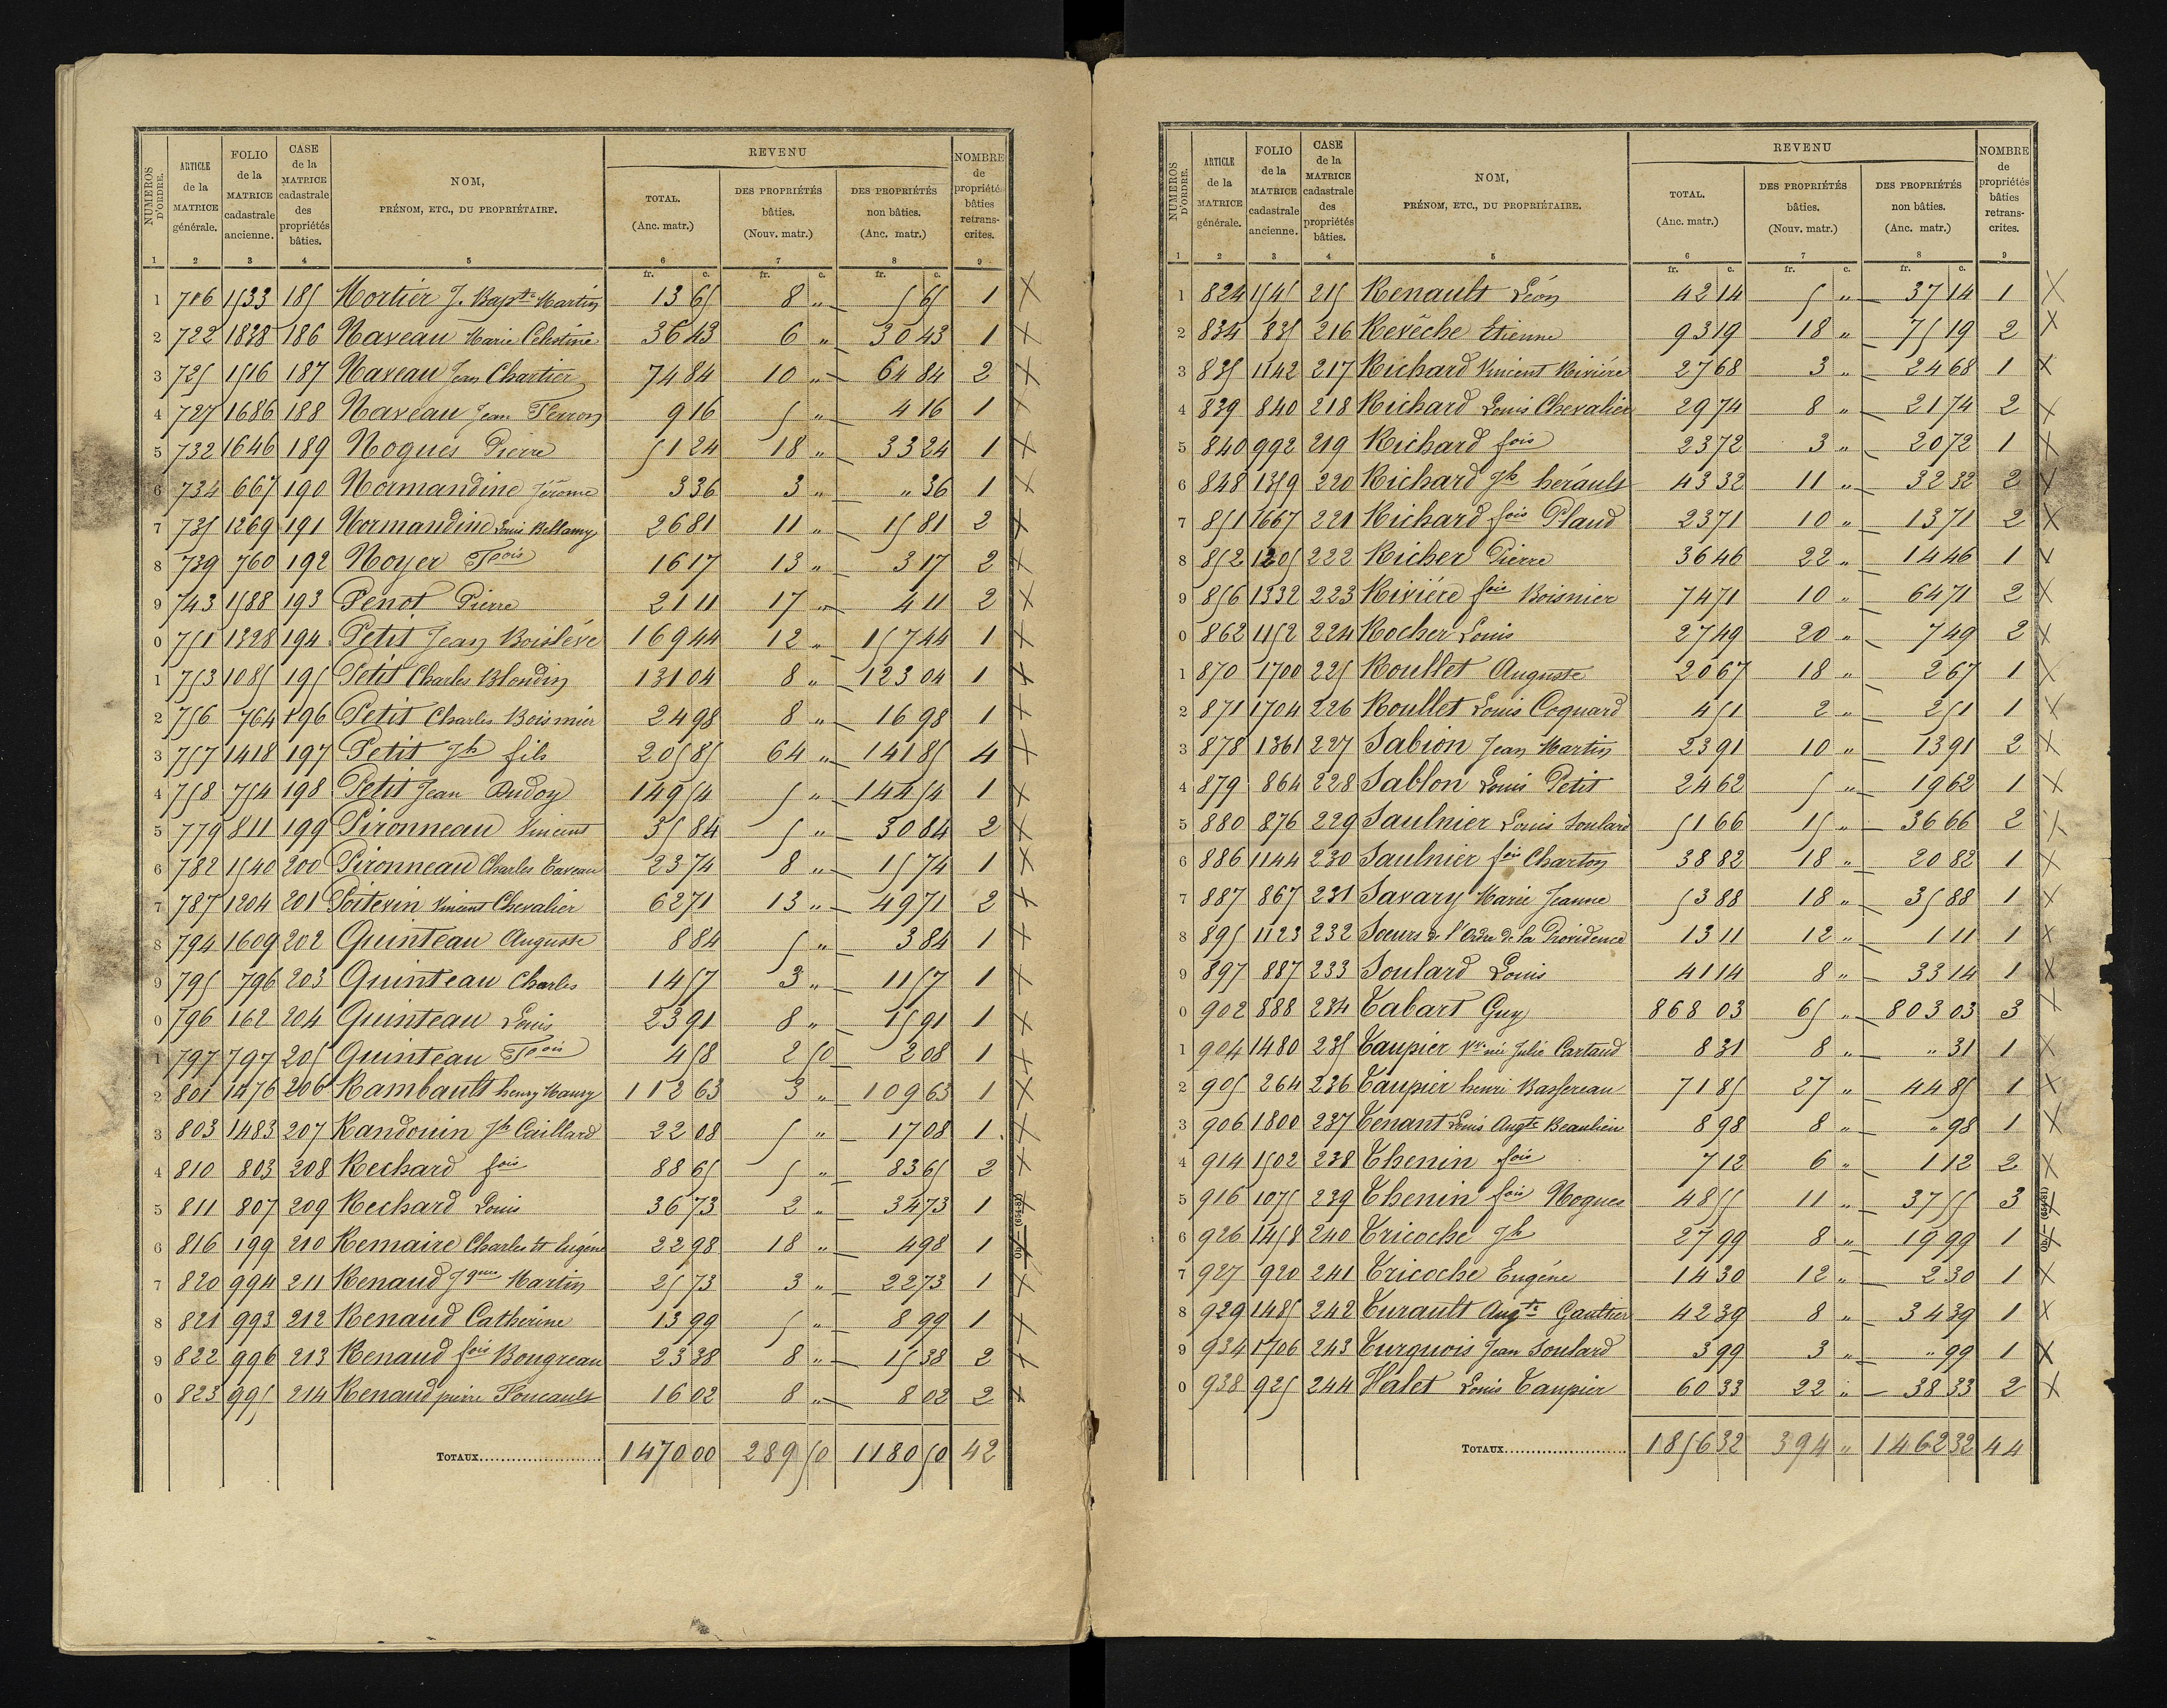 NUMÉROS D'ORDRE. | ARTICLE de la MATRICE générale. | FOLIO de la MATRICE cadastrale ancienne. | CASE de la MATRICE cadastrale des propriétés bâties. | NOM, PRÉNOM, ETC., DU PROPRIÉTAIRE. | REVENU TOTAL. (Anc. matr.) | DES PROPRIÉTÉS bâties. (Nouv. matr.) | DES PROPRIÉTÉS non bâties. (Anc. matr.) | NOMBRE de propriétés bâties retranscrites.
1 2 3 4 5 6 7 8 9
fr. c. fr. c. fr. c.
1 706 1533 185 Mortier J. Bapte Martin 13 65 8 " 5 65 1 X
2 722 1838 186 Naveau Marie Célestine 36 43 6 " 30 43 1 X
3 725 1516 187 Naveau Jean Chartier 74 84 10 " 64 84 2 X
4 727 1686 188 Naveau Jean Perron 9 16 5 " 4 16 1 X
5 732 1646 189 Nogues Pierre 51 24 18 " 33 24 1 X
6 734 667 190 Normandine Jérome 3 36 3 " " 36 1 X
7 735 1269 191 Normandine Louis Bellamy 26 81 11 " 15 81 2 X
8 739 760 192 Noyer Fçois 16 17 13 " 3 17 2 X
9 743 1588 193 Penot Pierre 21 11 17 " 4 11 2 X
0 751 1328 194 Petit Jean Boislève 169 44 12 " 157 44 1 X
1 753 1085 195 Petit Charles Blondin 131 04 8 " 123 04 1 X
2 756 764 196 Petit Charles Boismier 24 98 8 " 16 98 1 X
3 757 1418 197 Petit Jh fils 205 85 64 " 141 85 4 X
4 758 754 198 Petit Jean Audoy 149 54 5 " 144 54 1 X
5 779 811 199 Pironneau Vincent 35 84 5 " 30 84 2 X
6 782 1540 200 Pironneau Charles Taveau 23 74 8 " 15 74 1 X
7 787 1204 201 Poitevin Vincent Chevalier 62 71 13 " 49 71 2 X
8 794 1609 202 Quinteau Auguste 8 84 5 " 3 84 1 X
9 795 796 203 Quinteau Charles 14 57 3 " 11 57 1 X
0 796 162 204 Quinteau Louis 23 91 8 " 15 91 1 X
1 797 797 205 Quinteau Fçois 4 58 2 50 2 08 1 X
2 801 1476 206 Rambault henry Maury 112 63 3 " 109 63 1 X
3 803 1483 207 Randouin Jh Caillard 22 08 5 " 17 08 1 X
4 810 803 208 Rechard fois 88 65 5 " 83 65 2 X
5 811 807 209 Rechard Louis 36 73 2 " 34 73 1 X
6 816 199 210 Remaire Charles et Eugène 22 98 18 " 4 98 1 X
7 820 994 211 Renaud Jques Martin 25 73 3 " 22 73 1 X
8 821 993 212 Renaud Catherine 13 99 5 " 8 99 1 X
9 822 996 213 Renaud fois Bougreau 23 38 8 " 15 38 2 X
0 823 995 214 Renaud pierre Foucault 16 02 8 " 8 02 2 X
TOTAUX 1470 00 289 50 1180 50 42
NUMÉROS D'ORDRE. | ARTICLE de la MATRICE générale. | FOLIO de la MATRICE cadastrale ancienne. | CASE de la MATRICE cadastrale des propriétés bâties. | NOM, PRÉNOM, ETC., DU PROPRIÉTAIRE. | REVENU TOTAL. (Anc. matr.) | DES PROPRIÉTÉS bâties. (Nouv. matr.) | DES PROPRIÉTÉS non bâties. (Anc. matr.) | NOMBRE de propriétés bâties retranscrites.
1 2 3 4 5 6 7 8 9
fr. c. fr. c. fr. c.
1 824 1545 215 Renault Léon 42 14 5 " 37 14 1 X
2 834 835 216 Revêche Etienne 93 19 18 " 75 19 2 X
3 835 1142 217 Richard Vincent Rivière 27 68 3 " 24 68 1 X
4 839 840 218 Richard Louis Chevalier 29 74 8 " 21 74 2 X
5 840 992 219 Richard fois 23 72 3 " 20 72 1 X
6 848 1359 220 Richard Jh hérault 43 32 11 " 32 32 2 X
7 851 1667 221 Richard fois Plaud 23 71 10 " 13 71 2 X
8 852 1205 222 Richer Pierre 36 46 22 " 14 46 1 X
9 856 1332 223 Rivière fois Boismier 74 71 10 " 64 71 2 X
0 862 1152 224 Rocher Louis 27 49 20 " 7 49 2 X
1 870 1700 225 Roullet Auguste 20 67 18 " 2 67 1 X
2 871 1704 226 Roullet Louis Coquard 4 51 2 " 2 51 1 X
3 878 1361 227 Sabion Jean Martin 23 91 10 " 13 91 2 X
4 879 864 228 Sablon Louis Petit 24 62 5 " 19 62 1 X
5 880 876 229 Saulnier Louis Soulard 51 66 15 " 36 66 2 X
6 886 1144 230 Saulnier fois Charton 38 82 18 " 20 82 1 X
7 887 867 231 Savary Marie Jeanne 53 88 18 " 35 88 1 X
8 895 1123 232 Soeurs de l'Ordre de la Providence 13 11 12 " 1 11 1 X
9 897 887 233 Soulard Louis 41 14 8 " 33 14 1 X
0 902 888 234 Tabart Guy 868 03 65 " 803 03 3 X
1 904 1480 235 Taupier Vve née Julie Cartaud 8 31 8 " " 31 1 X
2 905 264 236 Taupier henri Bassereau 71 85 27 " 44 85 1 X
3 906 1800 237 Tenant Louis Augte Beaulieu 8 98 8 " " 98 1 X
4 914 1502 238 Thenin fois 7 12 6 " 1 12 2 X
5 916 1075 239 Thenin fois Nogues 48 55 11 " 37 55 3 X
6 926 1458 240 Tricoche Jh 27 99 8 " 19 99 1 X
7 927 920 241 Tricoche Eugène 14 30 12 " 2 30 1 X
8 929 1485 242 Turault Augte Gaultier 42 39 8 " 34 39 1 X
9 934 1706 243 Turquois Jean Soulard 3 99 3 " " 99 1 X
0 938 925 244 Valet Louis Taupier 60 33 22 " 38 33 2 X
TOTAUX 1856 32 394 " 1462 32 44